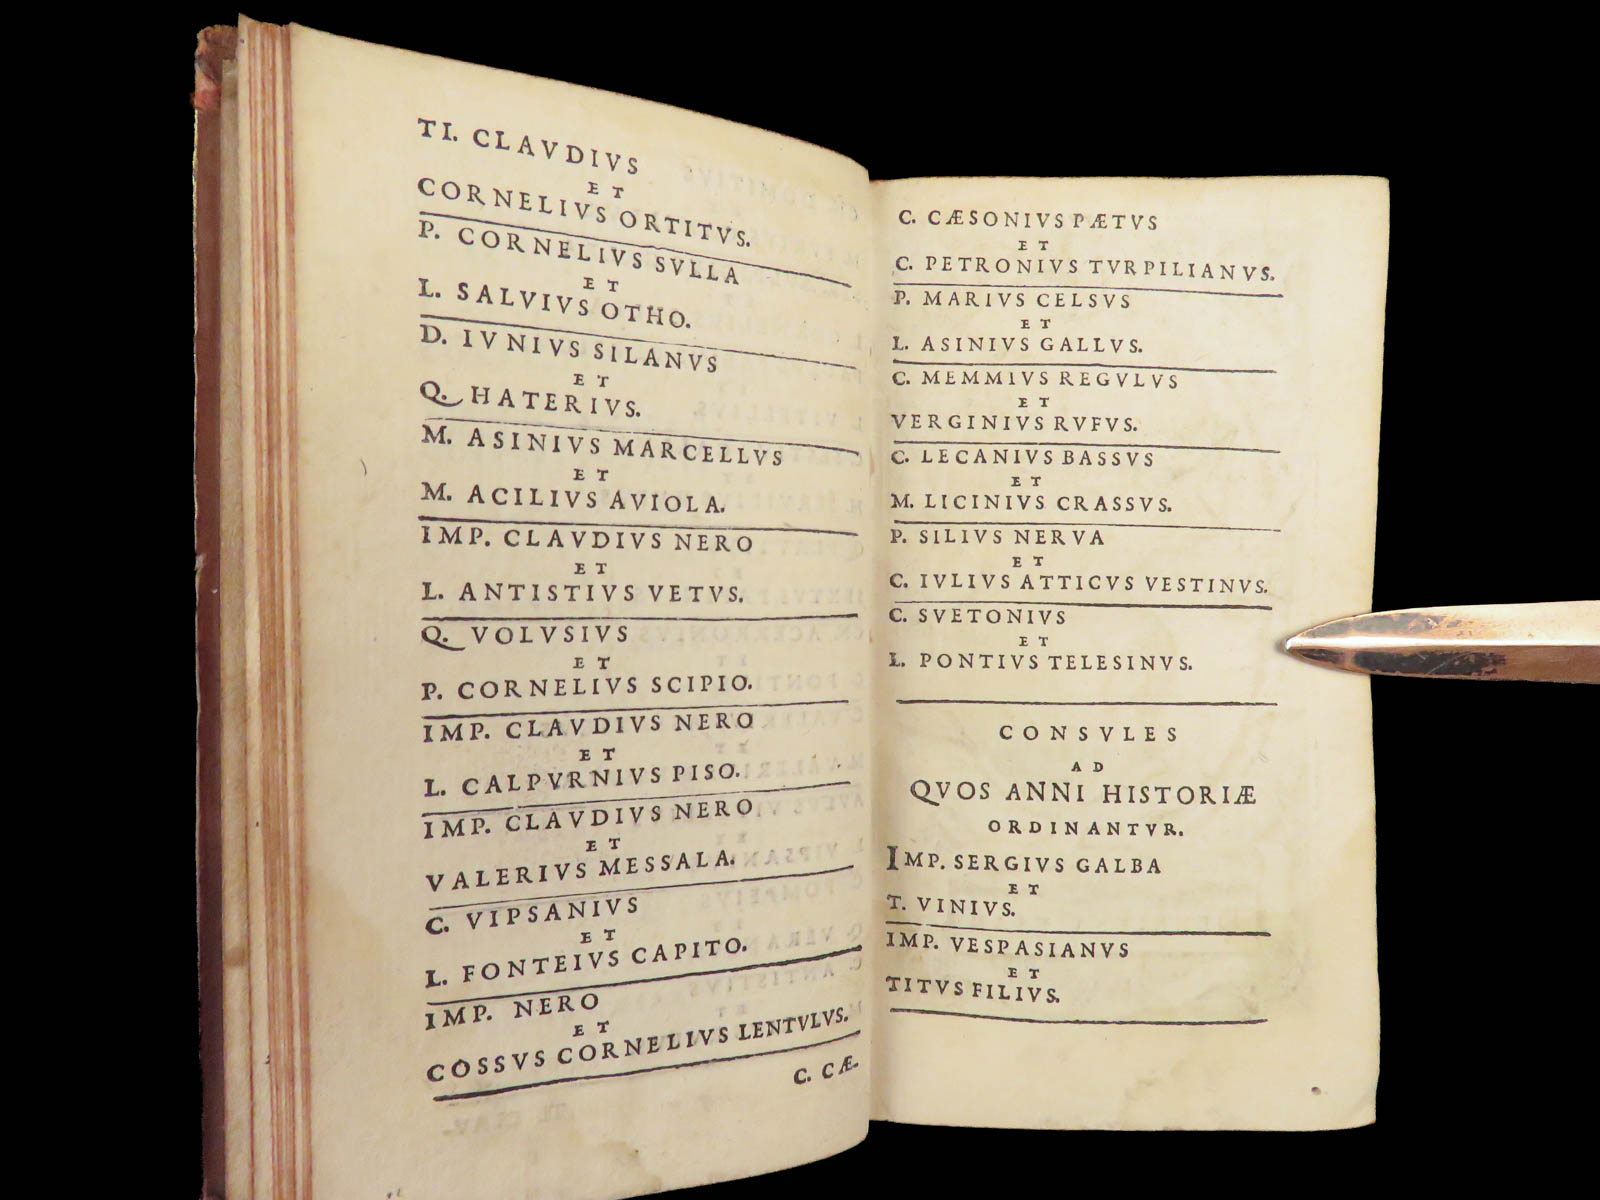 TI. CLAVDIVS
ET
CORNELIVS ORTITVS.
P. CORNELIVS SVLLA
ET
L. SALVIVS OTHO.
D. IVNIVS SILANVS
ET
Q. HATERIVS.
M. ASINIVS MARCELLVS
ET
M. ACILIVS AVIOLA.
IMP. CLAVDIVS NERO
ET
L. ANTISTIVS VETVS.
Q. VOLVSIVS
ET
P. CORNELIVS SCIPIO.
IMP. CLAVDIVS NERO
ET
L. CALPVRNIVS PISO.
IMP. CLAVDIVS NERO
ET
VALERIVS MESSALA.
C. VIPSANIVS
ET
L. FONTEIVS CAPITO.
IMP. NERO
ET
COSSVS CORNELIVS LENTVLVS.
C. CÆ-
C. CÆSONIVS PÆTVS
ET
C. PETRONIVS TVRPILIANVS.
P. MARIVS CELSVS
ET
L. ASINIVS GALLVS.
C. MEMMIVS REGVLVS
ET
VERGINIVS RVFVS.
C. LECANIVS BASSVS
ET
M. LICINIVS CRASSVS.
P. SILIVS NERVA
ET
C. IVLIVS ATTICVS VESTINVS.
C. SVETONIVS
ET
L. PONTIVS TELESINVS.
CONSVLES
AD
QVOS ANNI HISTORIÆ
ORDINANTVR.
IMP. SERGIVS GALBA
ET
T. VINIVS.
IMP. VESPASIANVS
ET
TITVS FILIVS.